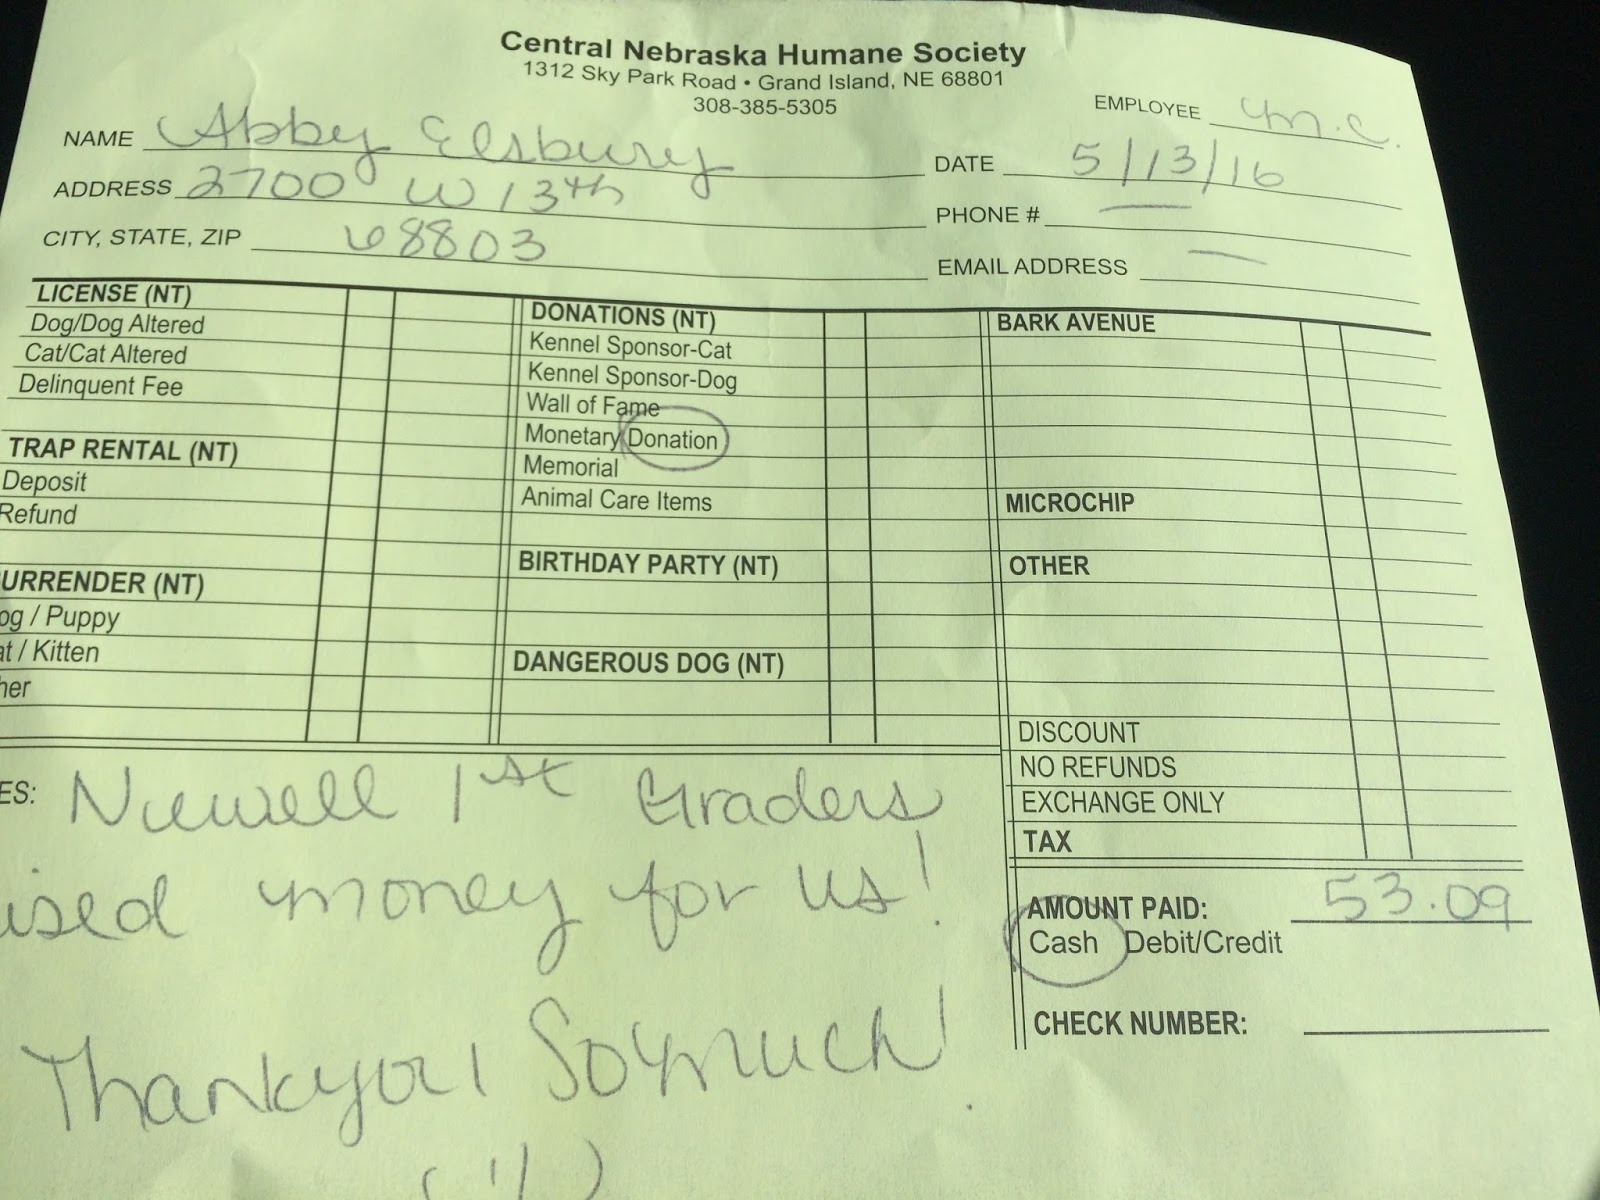 Central Nebraska Humane Society
1312 Sky Park Road • Grand Island, NE 68801
308-385-5305
EMPLOYEE M.C.
NAME Abby Elsbury
DATE 5/13/16
ADDRESS 2700 W 13th
PHONE # —
CITY, STATE, ZIP 68803
EMAIL ADDRESS —
LICENSE (NT)
Dog/Dog Altered
Cat/Cat Altered
Delinquent Fee
TRAP RENTAL (NT)
Deposit
Refund
URRENDER (NT)
og / Puppy
at / Kitten
her
DONATIONS (NT)
Kennel Sponsor-Cat
Kennel Sponsor-Dog
Wall of Fame
Monetary Donation
Memorial
Animal Care Items
BIRTHDAY PARTY (NT)
DANGEROUS DOG (NT)
BARK AVENUE
MICROCHIP
OTHER
DISCOUNT
NO REFUNDS
EXCHANGE ONLY
TAX
AMOUNT PAID: 53.09
Cash Debit/Credit
CHECK NUMBER:
ES: Newell 1st Graders
ised money for us!
Thankyou Somuch!